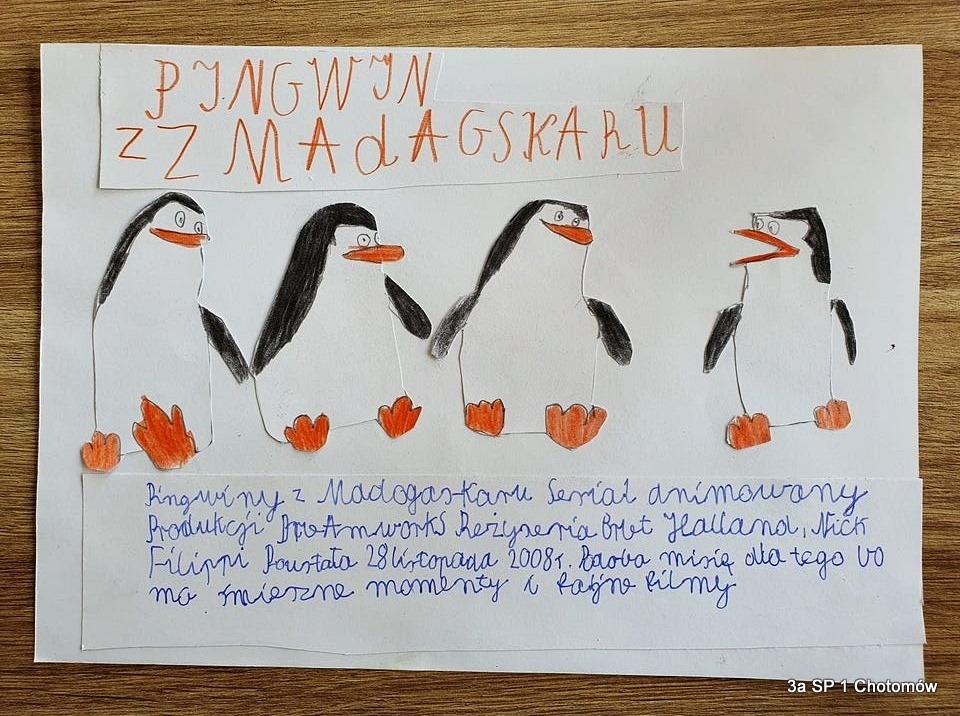 PINGWIN
Z Z MAdAGSKARU
Pingwiny z Madogaskaru Serial animowany
Produkcji DreAmworks Reżyseria Bret Halland, Nick
Filippi Powstała 28 listopada 2008r. Podoba misię dla tego bo
ma śmieszne momenty i fajne filmy
3a SP 1 Chotomów